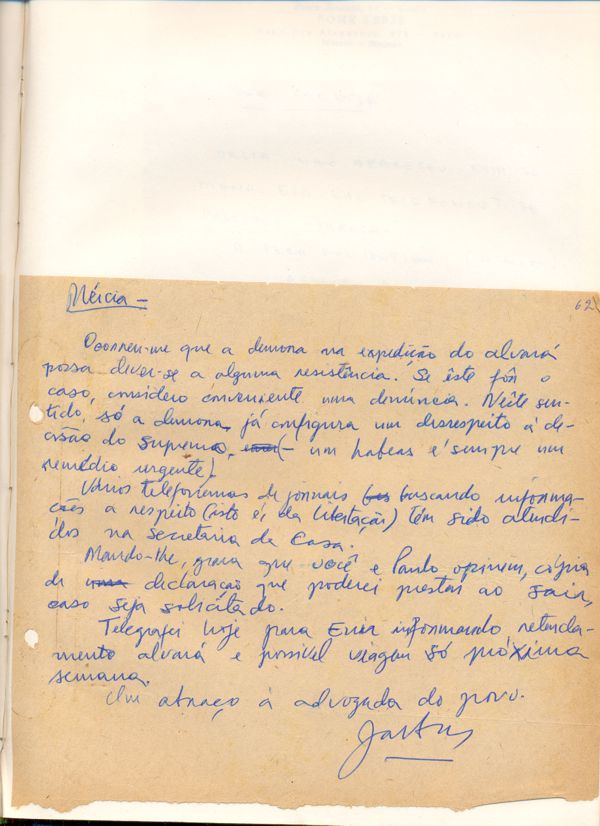 Mércia -
62
Ocorreu-me que a demora na expedição do alvará
possa dever-se a alguma resistência. Se êste fôr o
caso, considero conveniente uma denúncia. Neste sen-
tido, só a demora, já configura um desrespeito à de-
cisão do Supremo. (- um habeas é sempre um
remédio urgente).
Vários telefonemas de jornais buscando informa-
ções a respeito (isto é, da libertação) têm sido atendi-
dos na secretaria da Casa.
Mando-lhe, para que você e Paulo opinem, cópia
de declaração que poderei prestar ao sair,
caso seja solicitado.
Telegrafei hoje para informando retarda-
mento alvará e possível viagem só próxima
semana.
Um abraço à advogada do povo.